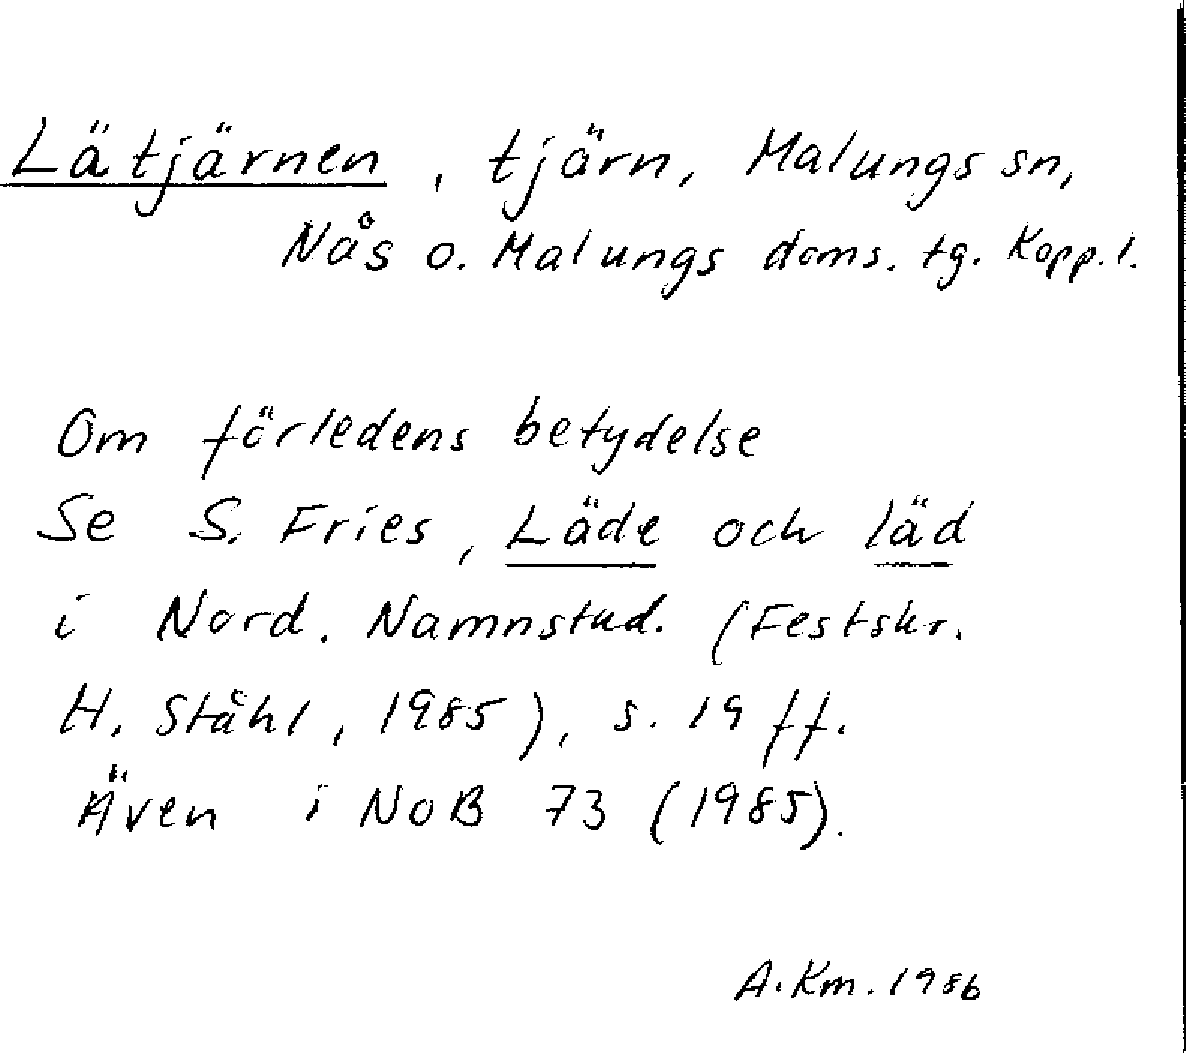 Lätjärnen, tjärn, Malungs sn,
Nås o. Malungs doms. tg. Kopp. l.
Om förledens betydelse
Se S. Fries, Läde och läd
i Nord. Namnstud. (Festskr.
H. Ståhl, 1985), s. 19 ff.
Även i NoB 73 (1985).
A. Km. 1986